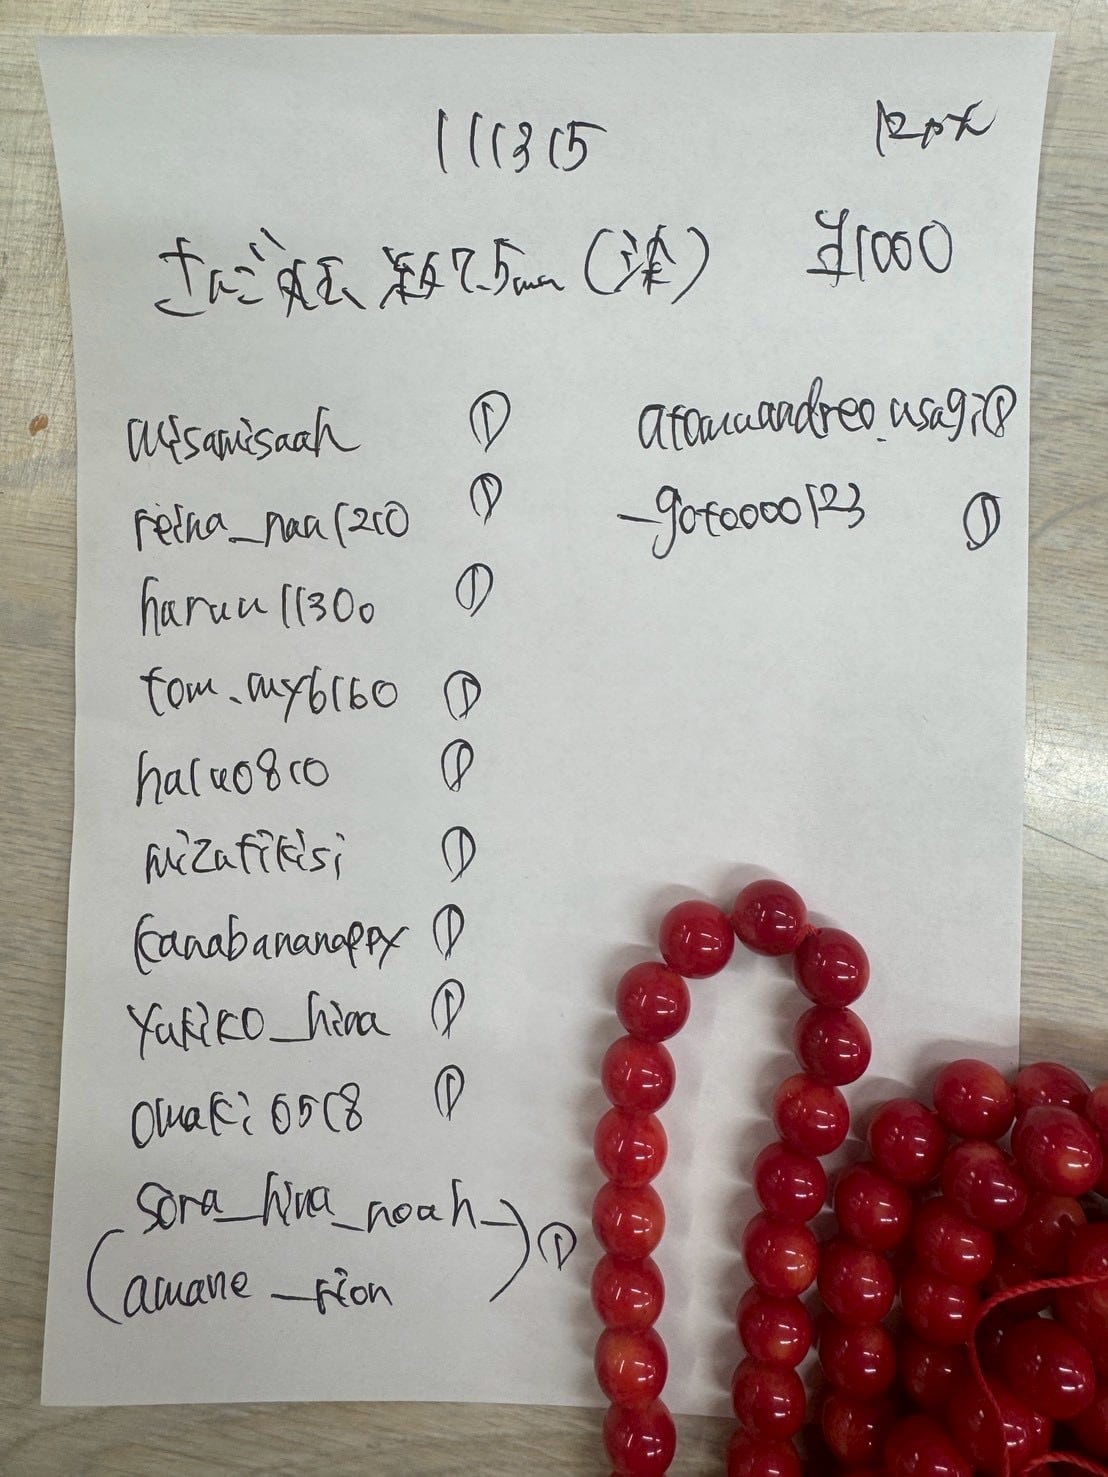 111315
12pt
さんご短 穀7.5mm (染) ¥1000
misamisaah ①
reina_naa1210 ①
haruu11300 ①
tom.my6160 ①
haluo810 ①
mizutikisi ①
kanabananappy ①
yukiko_hina ①
omaki0518 ①
(_sora_hina_noah_
amane_rion) ①
atomuandreo.usagi ①
_gotoooo123 ①